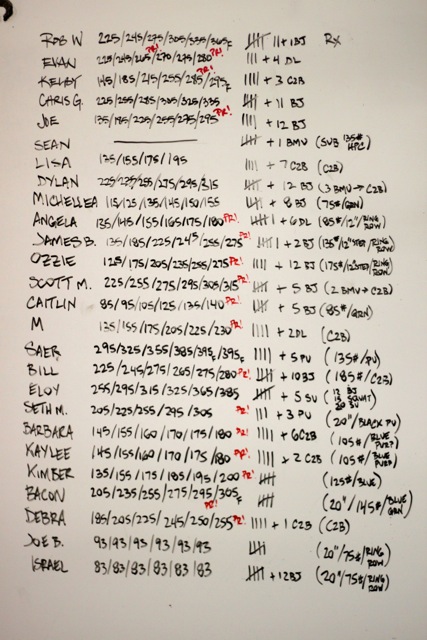 ROB W 225/245/275/305/335/365F 11 + 1 BJ RX
EVAN 225/245/265/270/275/280 PR! PR! + 4 DL
KELBY 145/185/215/245/255/285/295F PR! + 3 C2B
CHRIS G. 225/255/285/305/325/335 + 11 BJ
JOE 135/185/225/255/275/295 PR! + 12 BJ
SEAN + 1 BMU (SUB 135# HPC)
LISA 135/155/175/195 + 7 C2B (C2B)
DYLAN 225/255/275/295/315 + 12 BJ (3 BMU → C2B)
MICHELLE A 115/125/135/145/150/155 + 8 BJ (75#/GRN)
ANGELA 135/145/155/165/175/180 PR! + 6 DL (85#/12"/RING ROW)
JAMES B. 135/185/225/245/255/275 PR! + 2 BJ (135#/12"STEP/RING ROW)
OZZIE 125/175/205/235/255/275 PR! + 12 BJ (175#/12"STEP/RING ROW)
SCOTT M. 225/255/275/295/305/315 PR! + 5 BJ (2 BMU → C2B)
CAITLIN 85/95/105/125/135/140 PR! + 5 BJ (85#/GRN)
M 135/155/175/205/225/230 PR! + 2 DL (C2B)
SAER 295/325/355/385/395F/395F + 5 PU (135#/PU)
BILL 225/245/275/265/275/280 PR! + 10 BJ (185#/C2B)
ELOY 255/295/315/325/365/385 + 5 SU (12 BJ 15 SQUAT 20 SU)
SETH M. 205/225/255/295/305 PR! + 3 PU (20"/BLACK PU)
BARBARA 145/155/160/170/175/180 PR! + 6 C2B (105#/BLUE PURP)
KAYLEE 145/155/160/170/175/180 PR! + 2 C2B (105#/BLUE PURP)
KIMBER 135/155/175/185/195/200 PR! (125#/BLUE)
BACON 205/235/255/275/295/305F (20"/145#/BLUE GRN)
DEBRA 185/205/225/245/250/255 PR! PR! + 1 C2B (C2B)
JOE B. 93/93/93/93/93/93 (20"/75#/RING ROW)
ISRAEL 83/83/83/83/83/83 + 12 BJ (20"/75#/RING ROW)